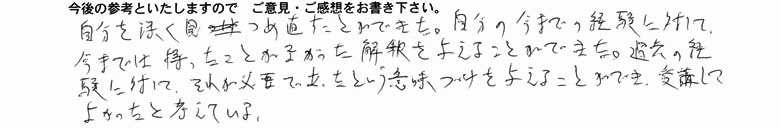 今後の参考といたしますので　ご意見・ご感想をお書き下さい。
自分を深く見つめ直すことができた。自分の今までの経験に対して、
今までは持ったことがなかった解釈を与えることができた。過去の経
験に対して、それが必要であったという意味づけを与えることができ、受講して
よかったと考えている。